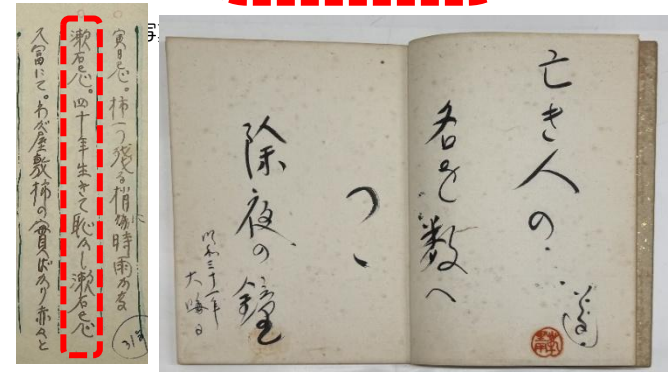 寅日忌。柿一つ残る梢に時雨かな
漱石忌。四十年生きて恥多し漱石忌
久富にて。わが屋敷柿の實ばかり赤々と
31年
亡き人の
名を数へ
つゝ
除夜の鐘
昭和三十一年
大晦日